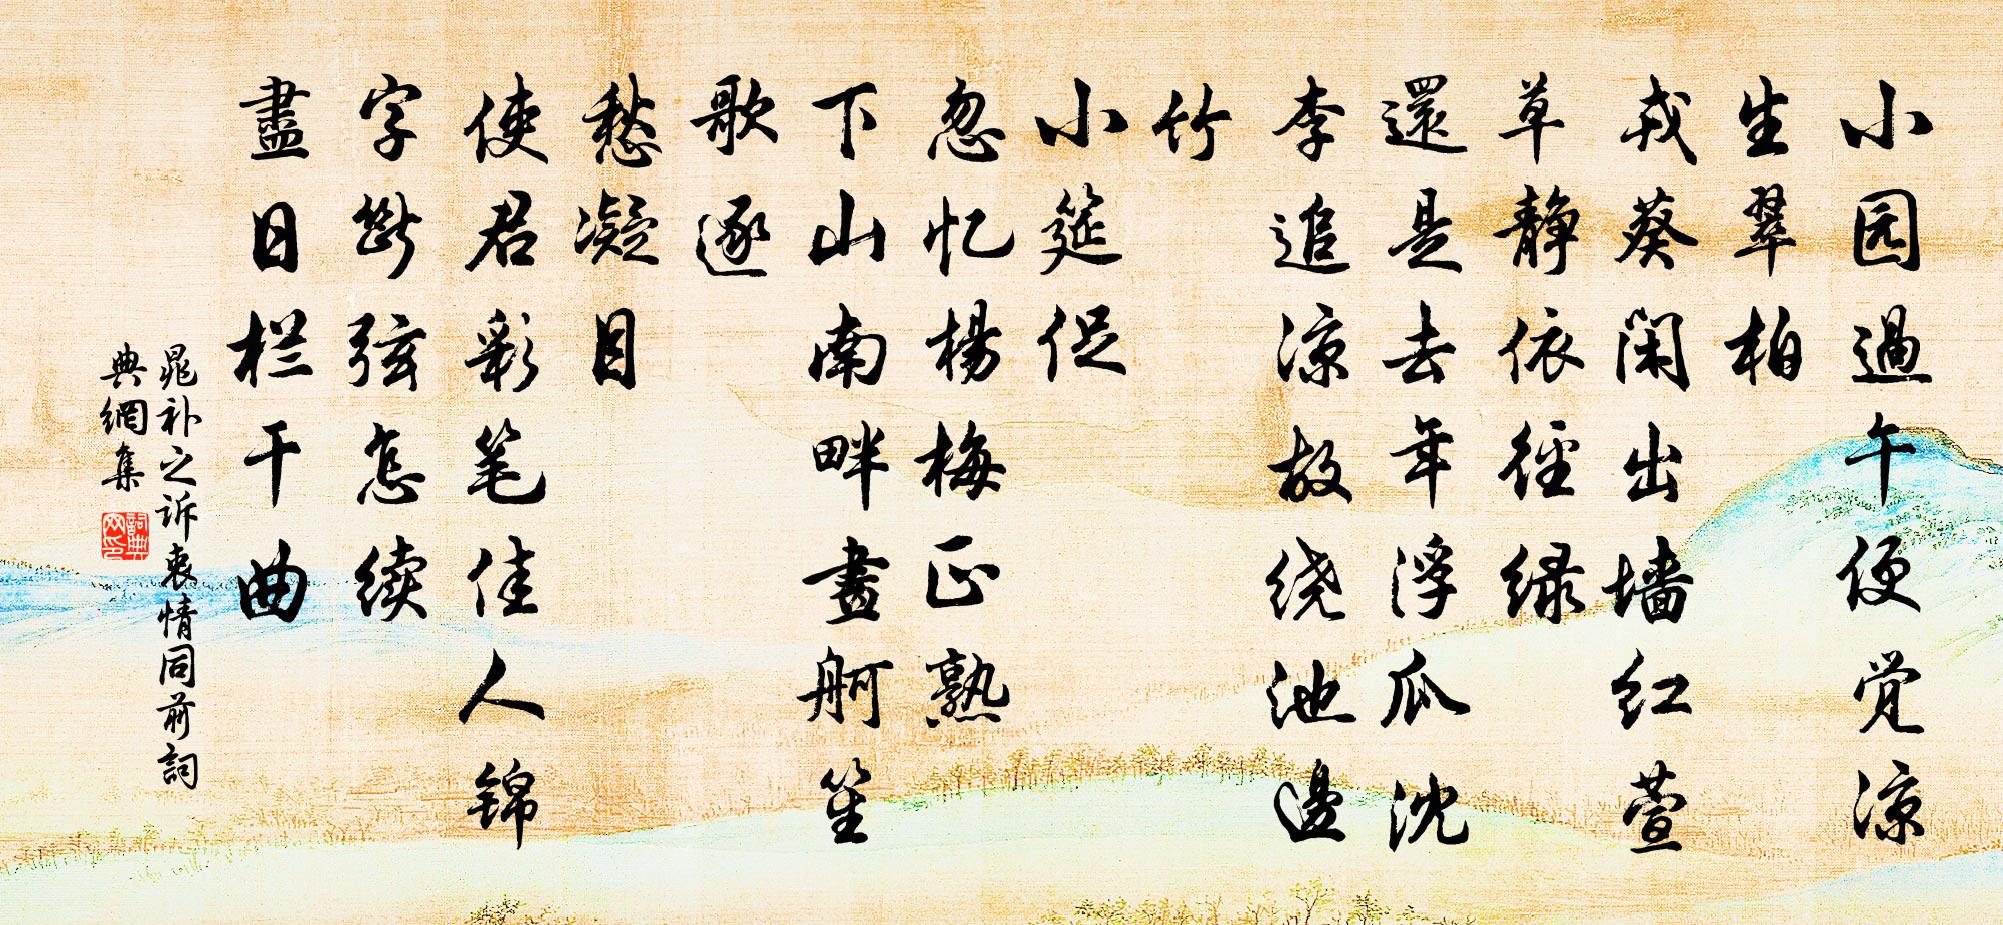 小园過午便觉凉
生翠柏
戎葵闲出墙红萱
草静依径绿
還是去年浮瓜沈
李追凉故绕池邊
竹
小筵促
忽忆楊梅正熟
下山南畔畫舸笙
歌逐
愁凝目
使君彩笔佳人锦
字斷弦怎续
盡日栏干曲
晁补之诉衷情同前詞
典網集
詞典网印